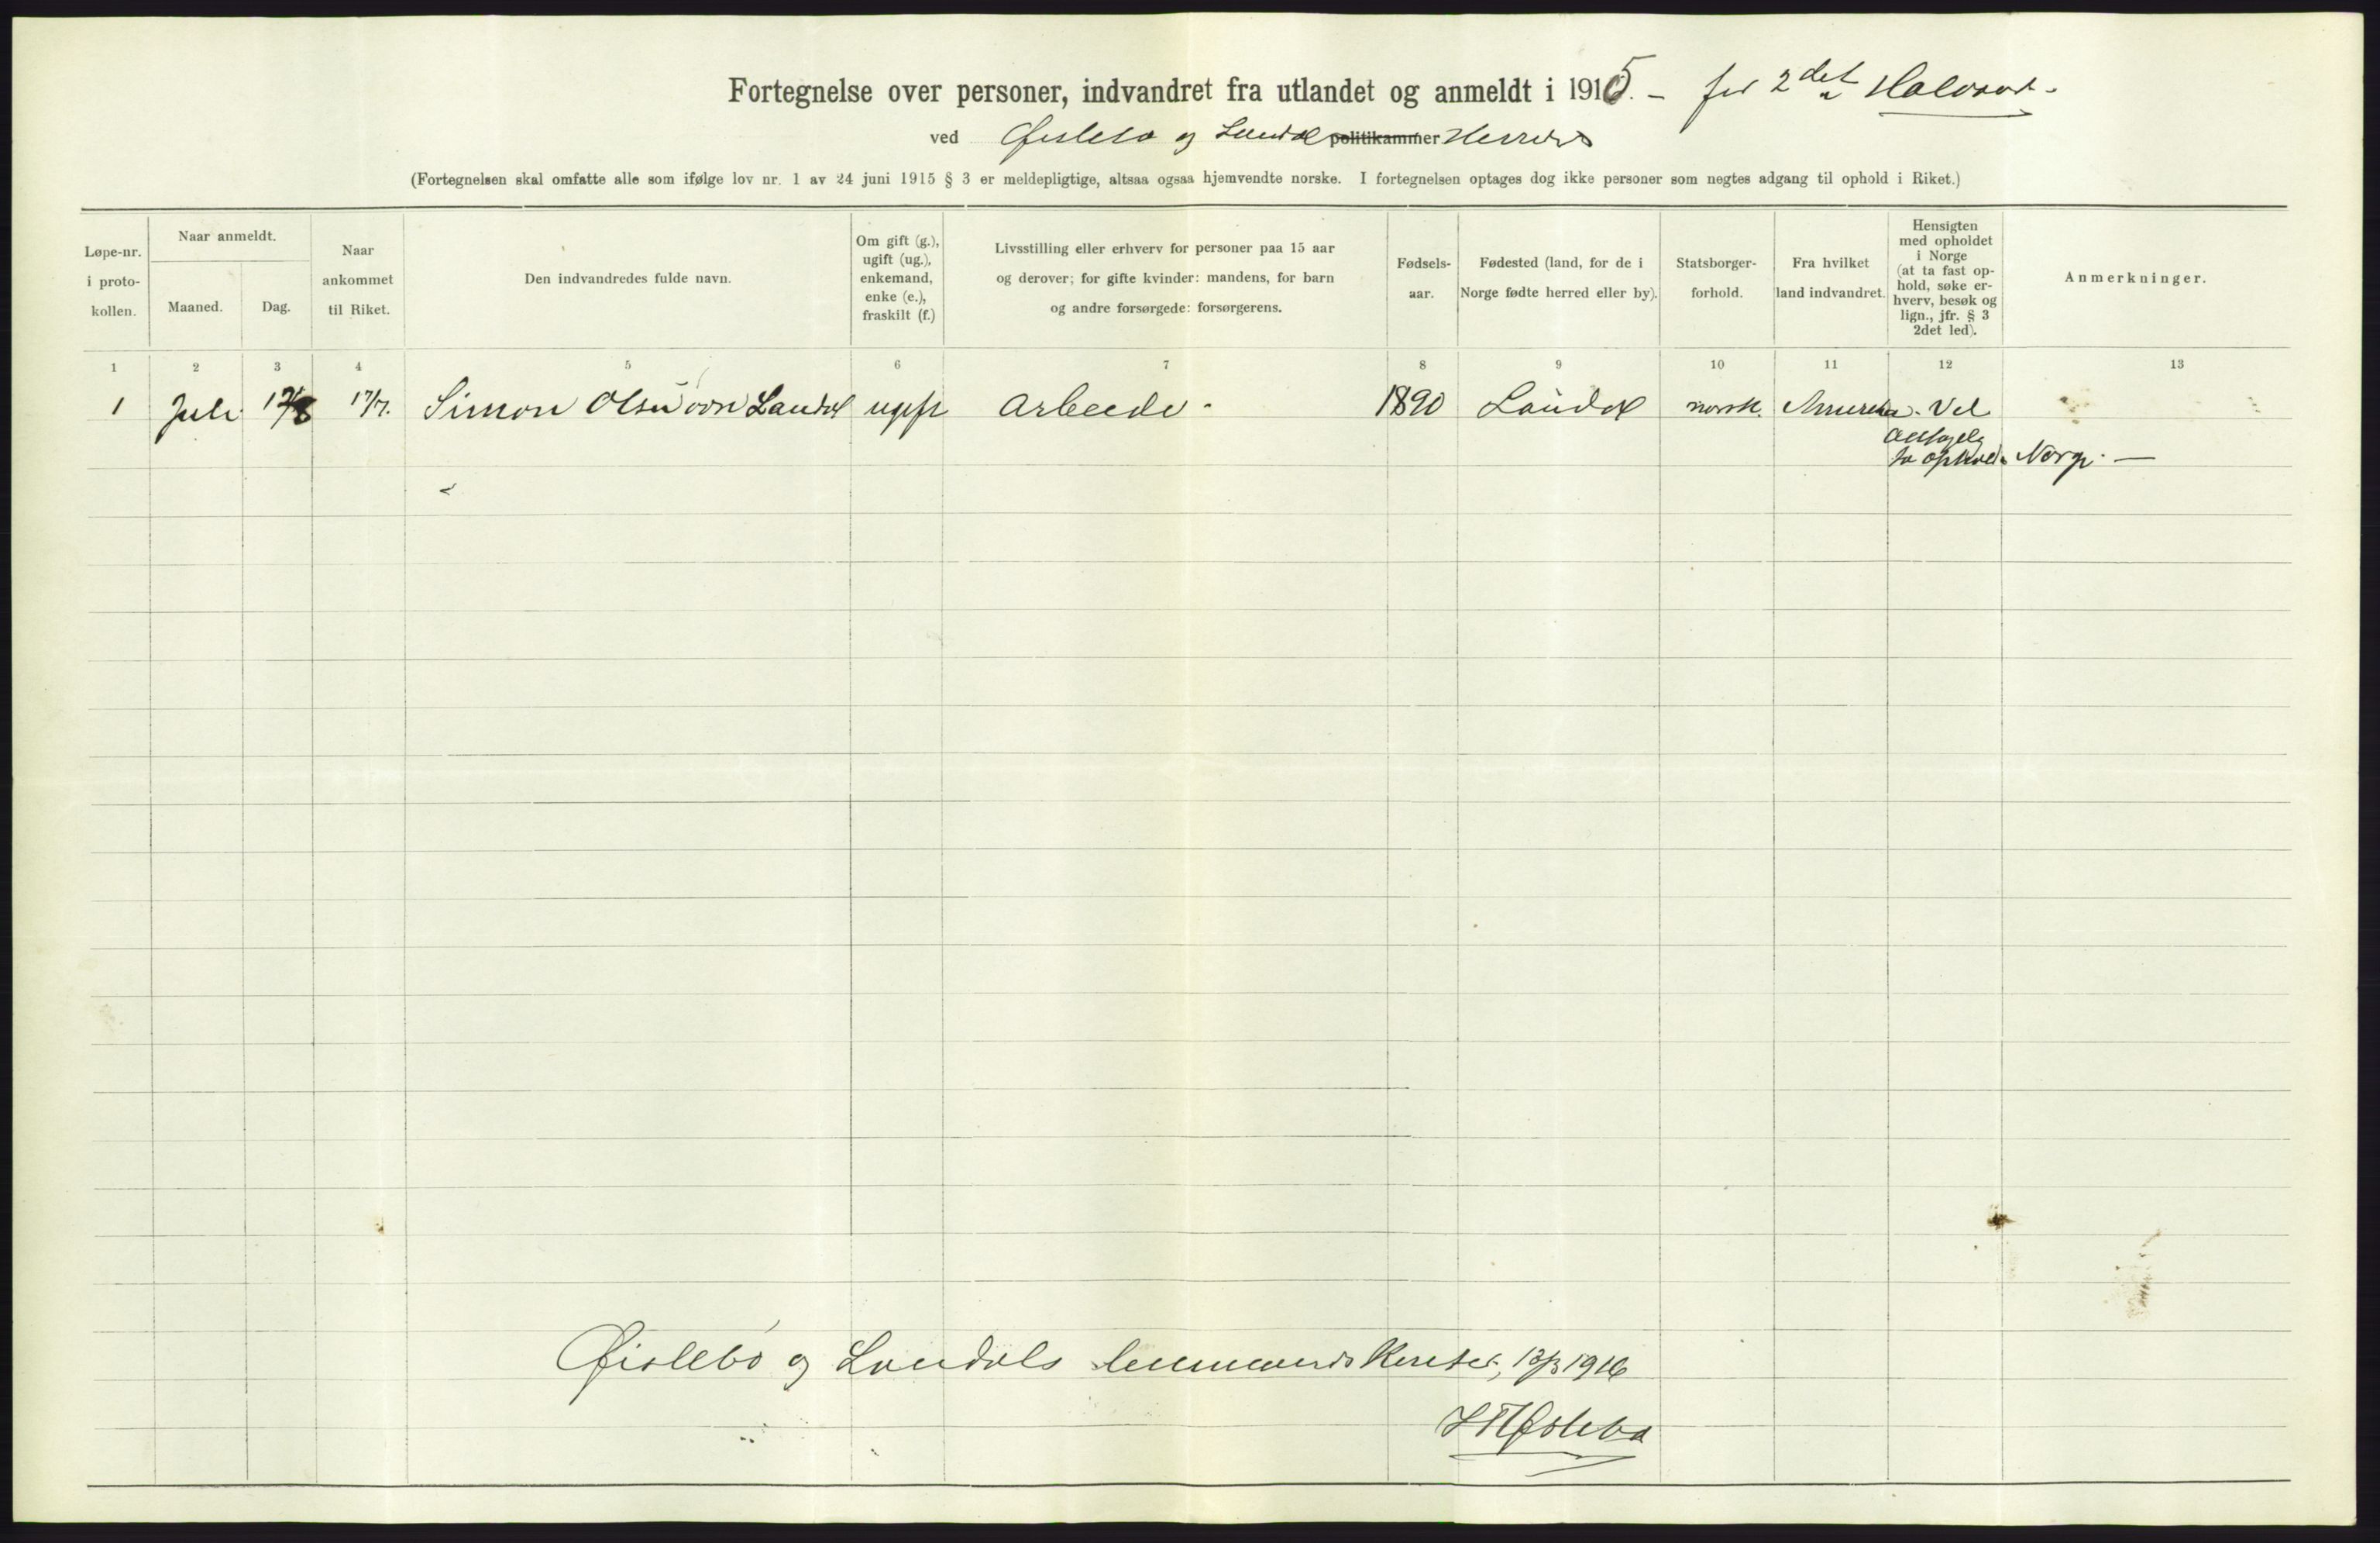 Fortegnelse over personer, indvandret fra utlandet og anmeldt i 1915. – for 2det Halvaar.
ved Øislebø og Laudal politikammer Herreder
(Fortegnelsen skal omfatte alle som ifølge lov nr. 1 av 24 juni 1915 § 3 er meldepligtige, altsaa ogsaa hjemvendte norske. I fortegnelsen optages dog ikke personer som negtes adgang til ophold i Riket.)
Løpe-nr.
i proto-
kollen.
Naar anmeldt.
Maaned.
Dag.
Naar
ankommet
til Riket.
Den indvandredes fulde navn.
Om gift (g.),
ugift (ug.),
enkemand,
enke (e.),
fraskilt (f.)
Livsstilling eller erhverv for personer paa 15 aar
og derover; for gifte kvinder: mandens, for barn
og andre forsørgede: forsørgerens.
Fødsels-
aar.
Fødested (land, for de i
Norge fødte herred eller by).
Statsborger-
forhold.
Fra hvilket
land indvandret.
Hensigten
med opholdet
i Norge
(at ta fast op-
hold, søke er-
hverv, besøk og
lign., jfr. § 3
2det led).
Anmerkninger.
1 2 3 4 5 6 7 8 9 10 11 12 13
1 Juli 17/7. Simon Olsen Laudal ugift Arbeider 1890 Laudal norsk. Amerika. Vel
ta ophold i Norge. —
Øislebø og Laudals lensmandskontor, 13/3 1916
Øslebø